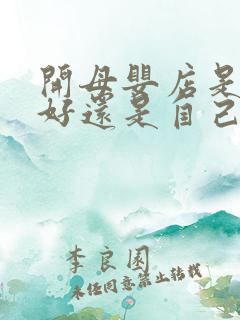 開母嬰店是
好還是自己
李良園
未经同意禁止转载